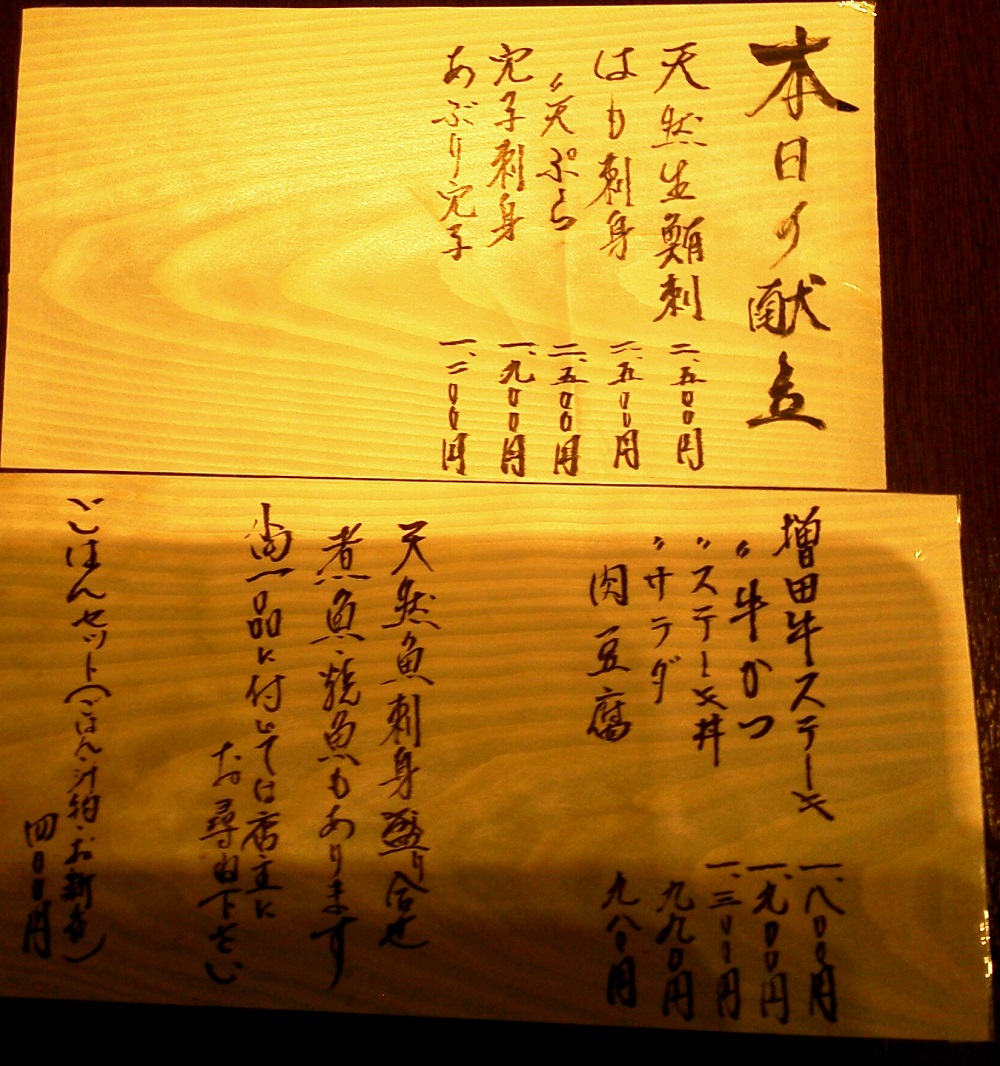 本日の献立
天然生鮪刺 二、五〇〇円
はも刺身 二、五〇〇円
〃天ぷら 二、五〇〇円
穴子刺身 一、九〇〇円
あぶり穴子 一、二〇〇円
増田牛ステーキ 一、八〇〇円
〃牛かつ 一、九〇〇円
〃ステーキ丼 一、三〇〇円
〃サラダ 九九〇円
肉豆腐 九八〇円
天然魚刺身盛り合せ
煮魚、焼魚もあります
尚一品に付しては店主に
お尋ね下さい
ごはんセット(ごはん・汁物・お新香)
四〇〇円